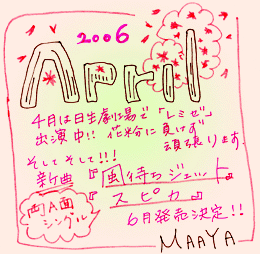 2006
April
4月は日生劇場で「レミゼ」
出演中!! 花粉に負けず
頑張ります
そしてそして!!!
新曲『風待ちジェット』
『スピカ』
両A面
シングル
6月発売決定!!
MAAYA